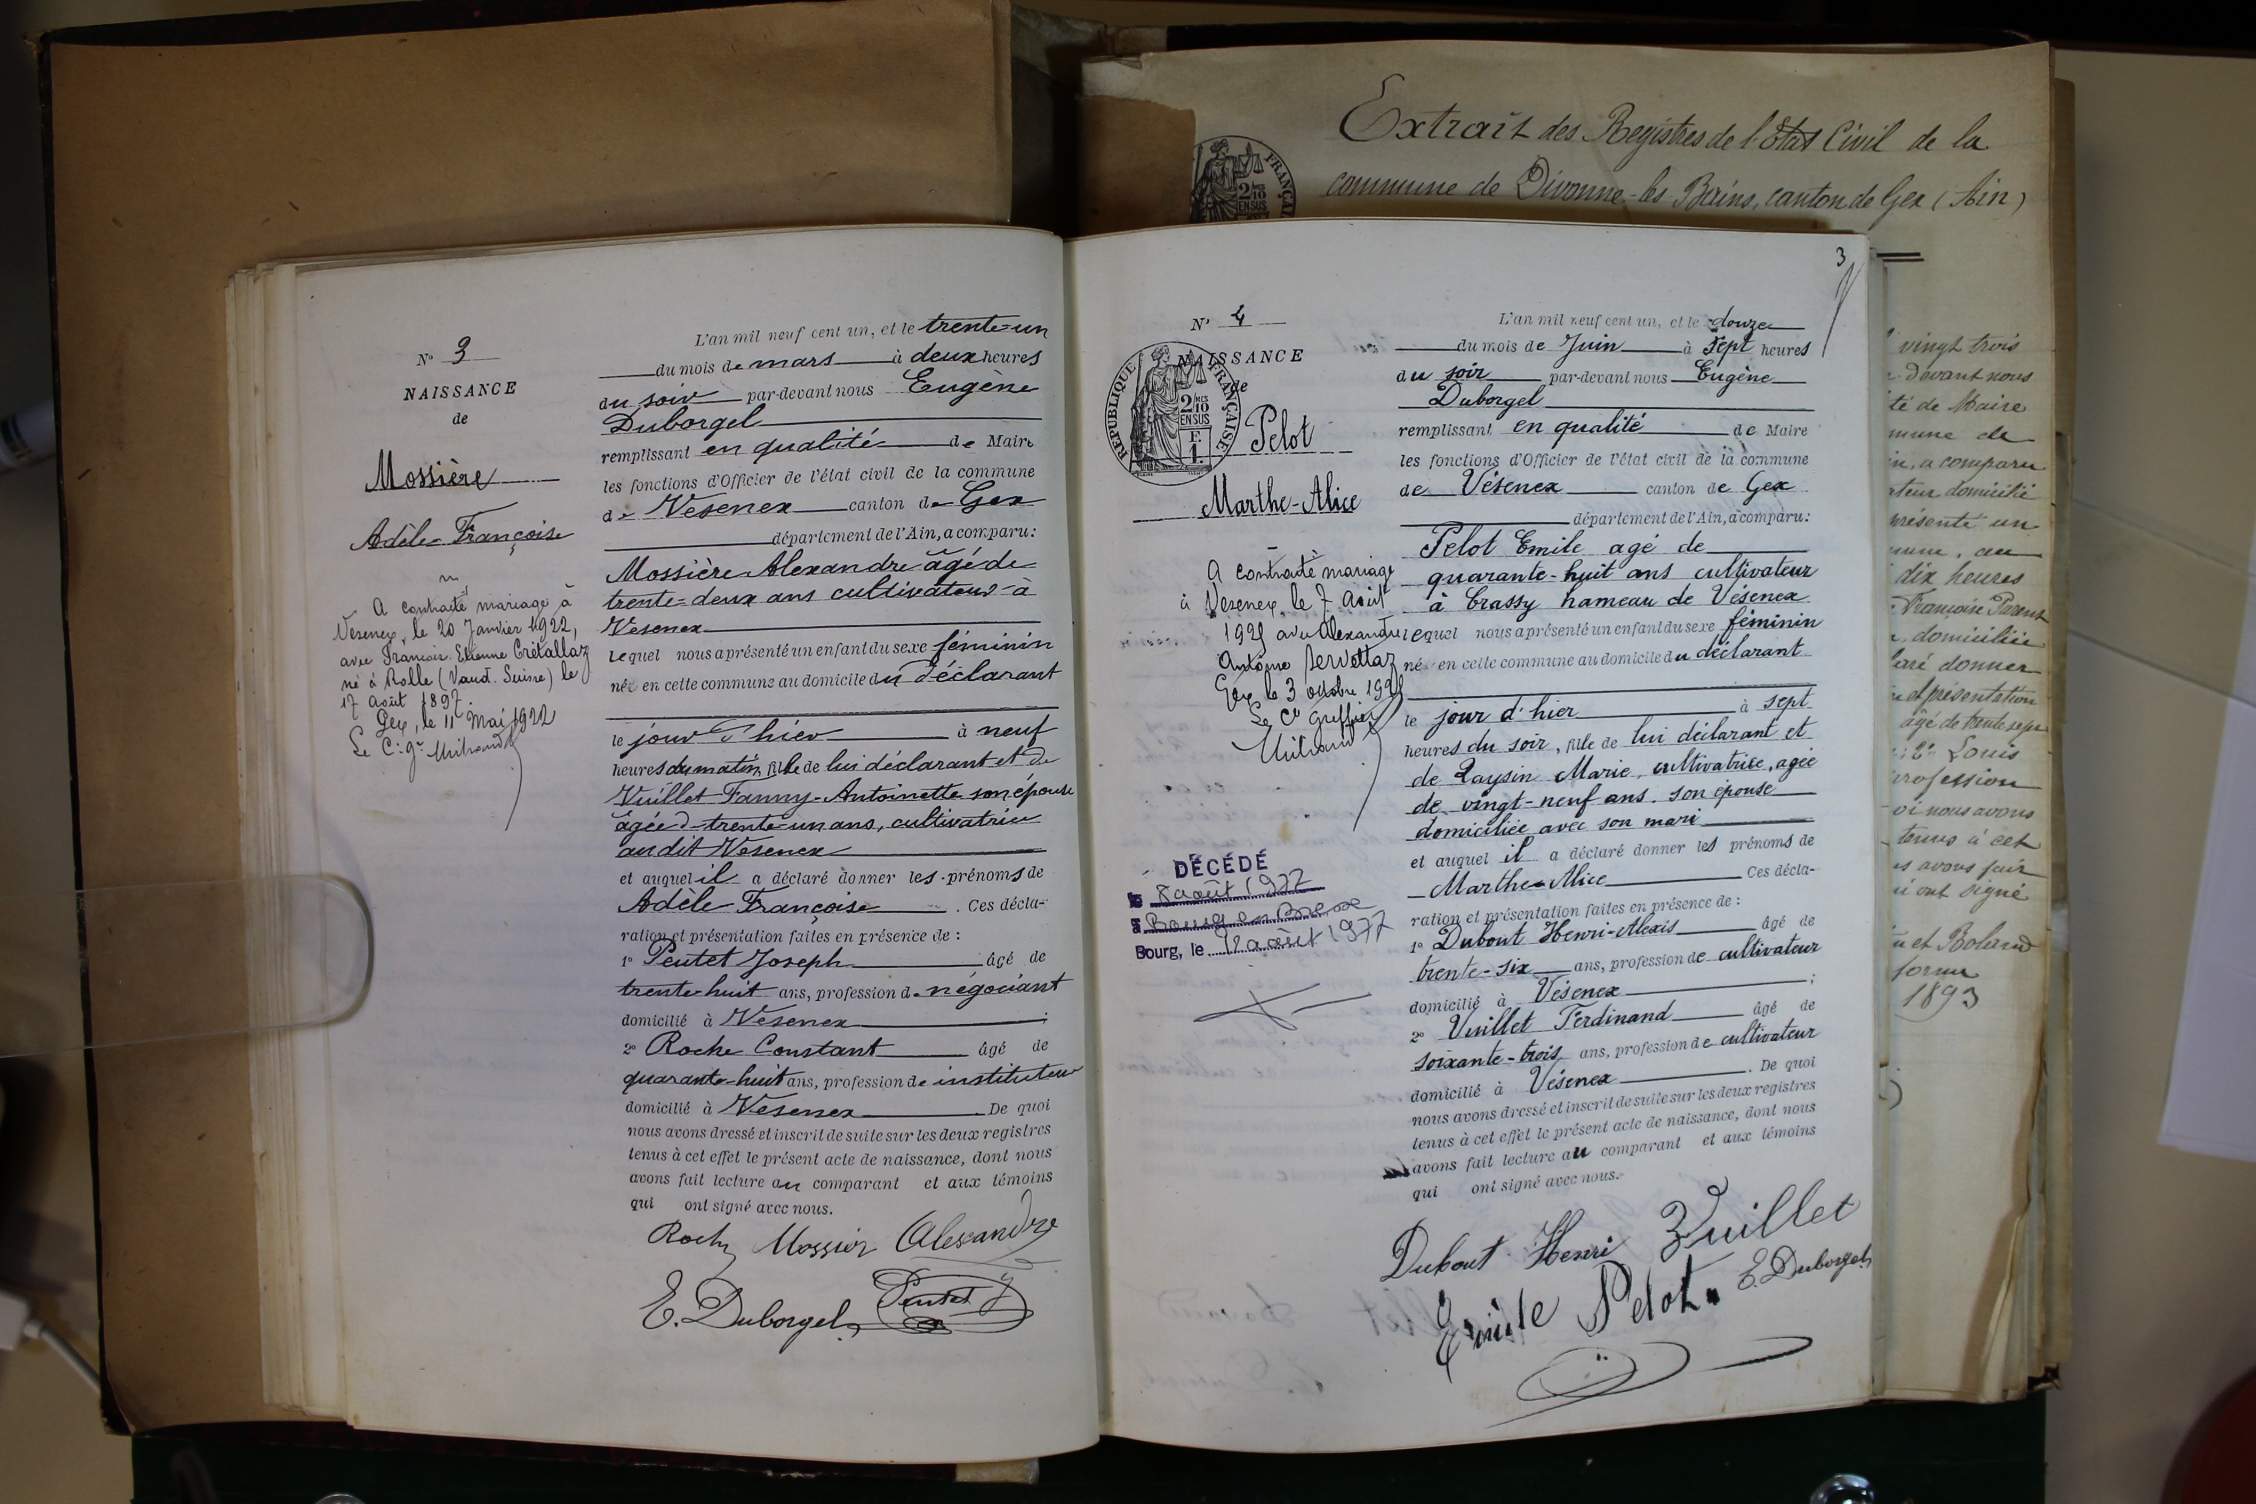 Extrait des Registres de l'Etat Civil de la
commune de Divonne-les-Bains, canton de Gex (Ain)
N° 3
NAISSANCE
de
Mossière
Adèle-Françoise
A contracté mariage à
Vesenex, le 20 Janvier 1922,
avec François Etienne Crétallaz
né à Rolle (Vaud. Suisse) le
17 août 1897.
Gex, le 11 Mai 1922
Le C. g.
L'an mil neuf cent un, et le trente-un
du mois de mars à deux heures
du soir par-devant nous Eugène
Duborgel
remplissant en qualité de Maire
les fonctions d'Officier de l'état civil de la commune
de Vesenex canton de Gex
département de l'Ain, a comparu:
Mossière Alexandre âgé de
trente-deux ans cultivateur à
Vesenex
lequel nous a présenté un enfant du sexe féminin
née en cette commune au domicile du déclarant
le jour d'hier à neuf
heures du matin, fille de lui déclarant et de
Vuillet Fanny-Antoinette son épouse
âgée de trente-un ans, cultivatrice
au dit Vesenex
et auquel il a déclaré donner les prénoms de
Adèle Françoise. Ces décla-
ration et présentation faites en présence de :
1° Pentet Joseph âgé de
trente-huit ans, profession de négociant
domicilié à Vesenex ;
2° Roche Constant âgé de
quarante-huit ans, profession de instituteur
domicilié à Vesenex. De quoi
nous avons dressé et inscrit de suite sur les deux registres
tenus à cet effet le présent acte de naissance, dont nous
avons fait lecture au comparant et aux témoins
qui ont signé avec nous.
Roche Mossier Alexandre
E. Duborgel Pentet J
3
N° 4
NAISSANCE
de
REPUBLIQUE FRANÇAISE
2/10
EN SUS
Pelot
Marthe-Alice
A contracté mariage
à Vesenex, le 7 Août
1928 avec Alexandre
Antoine Servettaz
Gex le 3 octobre 1928
Le Cs Greffier
DÉCÉDÉ
le 8 août 1977
à Bourg en Bresse
Bourg, le 12 août 1977
L'an mil neuf cent un, et le douze
du mois de Juin à sept heures
du soir par-devant nous Eugène
Duborgel
remplissant en qualité de Maire
les fonctions d'Officier de l'état civil de la commune
de Vésenex canton de Gex
département de l'Ain, a comparu:
Pelot Emile agé de
quarante-huit ans cultivateur
à Crassy hameau de Vésenex
lequel nous a présenté un enfant du sexe féminin
née en cette commune au domicile du déclarant
le jour d'hier à sept
heures du soir, fille de lui déclarant et
de Raysin Marie, cultivatrice, agée
de vingt-neuf ans. son épouse
domiciliée avec son mari
et auquel il a déclaré donner les prénoms de
Marthe-Alice Ces décla-
ration et présentation faites en présence de :
1° Dubout Henri-Alexis âgé de
trente-six ans, profession de cultivateur
domicilié à Vésenex ;
2° Vuillet Ferdinand âgé de
soixante-trois ans, profession de cultivateur
domicilié à Vésenex. De quoi
nous avons dressé et inscrit de suite sur les deux registres
tenus à cet effet le présent acte de naissance, dont nous
avons fait lecture au comparant et aux témoins
qui ont signé avec nous.
Dubout Henri Vuillet
Emile Pelot E. Duborgel
vingt trois
devant nous
té de Maire
mune de
a comparu
teur domicilié
présenté un
dix heures
Françoise Parent
domiciliée
laré donner
et présentation
âgé de trente sept
2° Louis
profession
oi nous avons
tenus à cet
avons fait
ont signé
et Boland
forme
1893